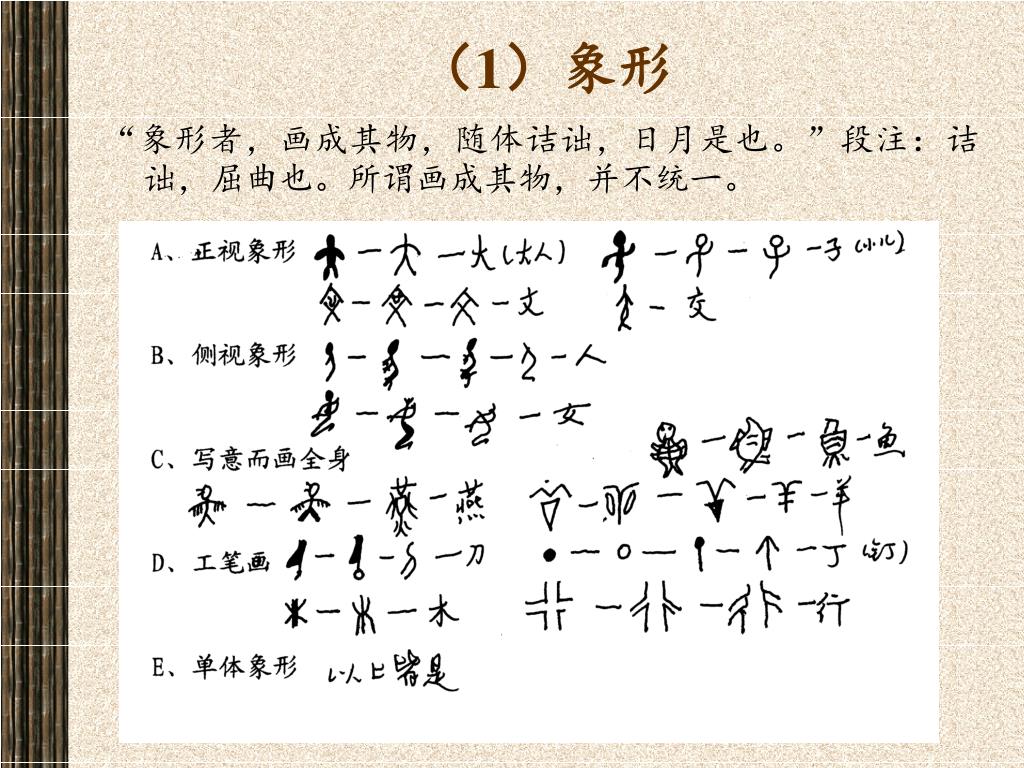 （1）象形
“象形者，画成其物，随体诘诎，日月是也。”段注：诘
诎，屈曲也。所谓画成其物，并不统一。
A、正视象形 大(大人) 子(小儿)
文 交
B、侧视象形 人
女
鱼
C、写意而画全身
燕 羊
D、工笔画 刀 丁(钉)
木 行
E、单体象形 以上皆是